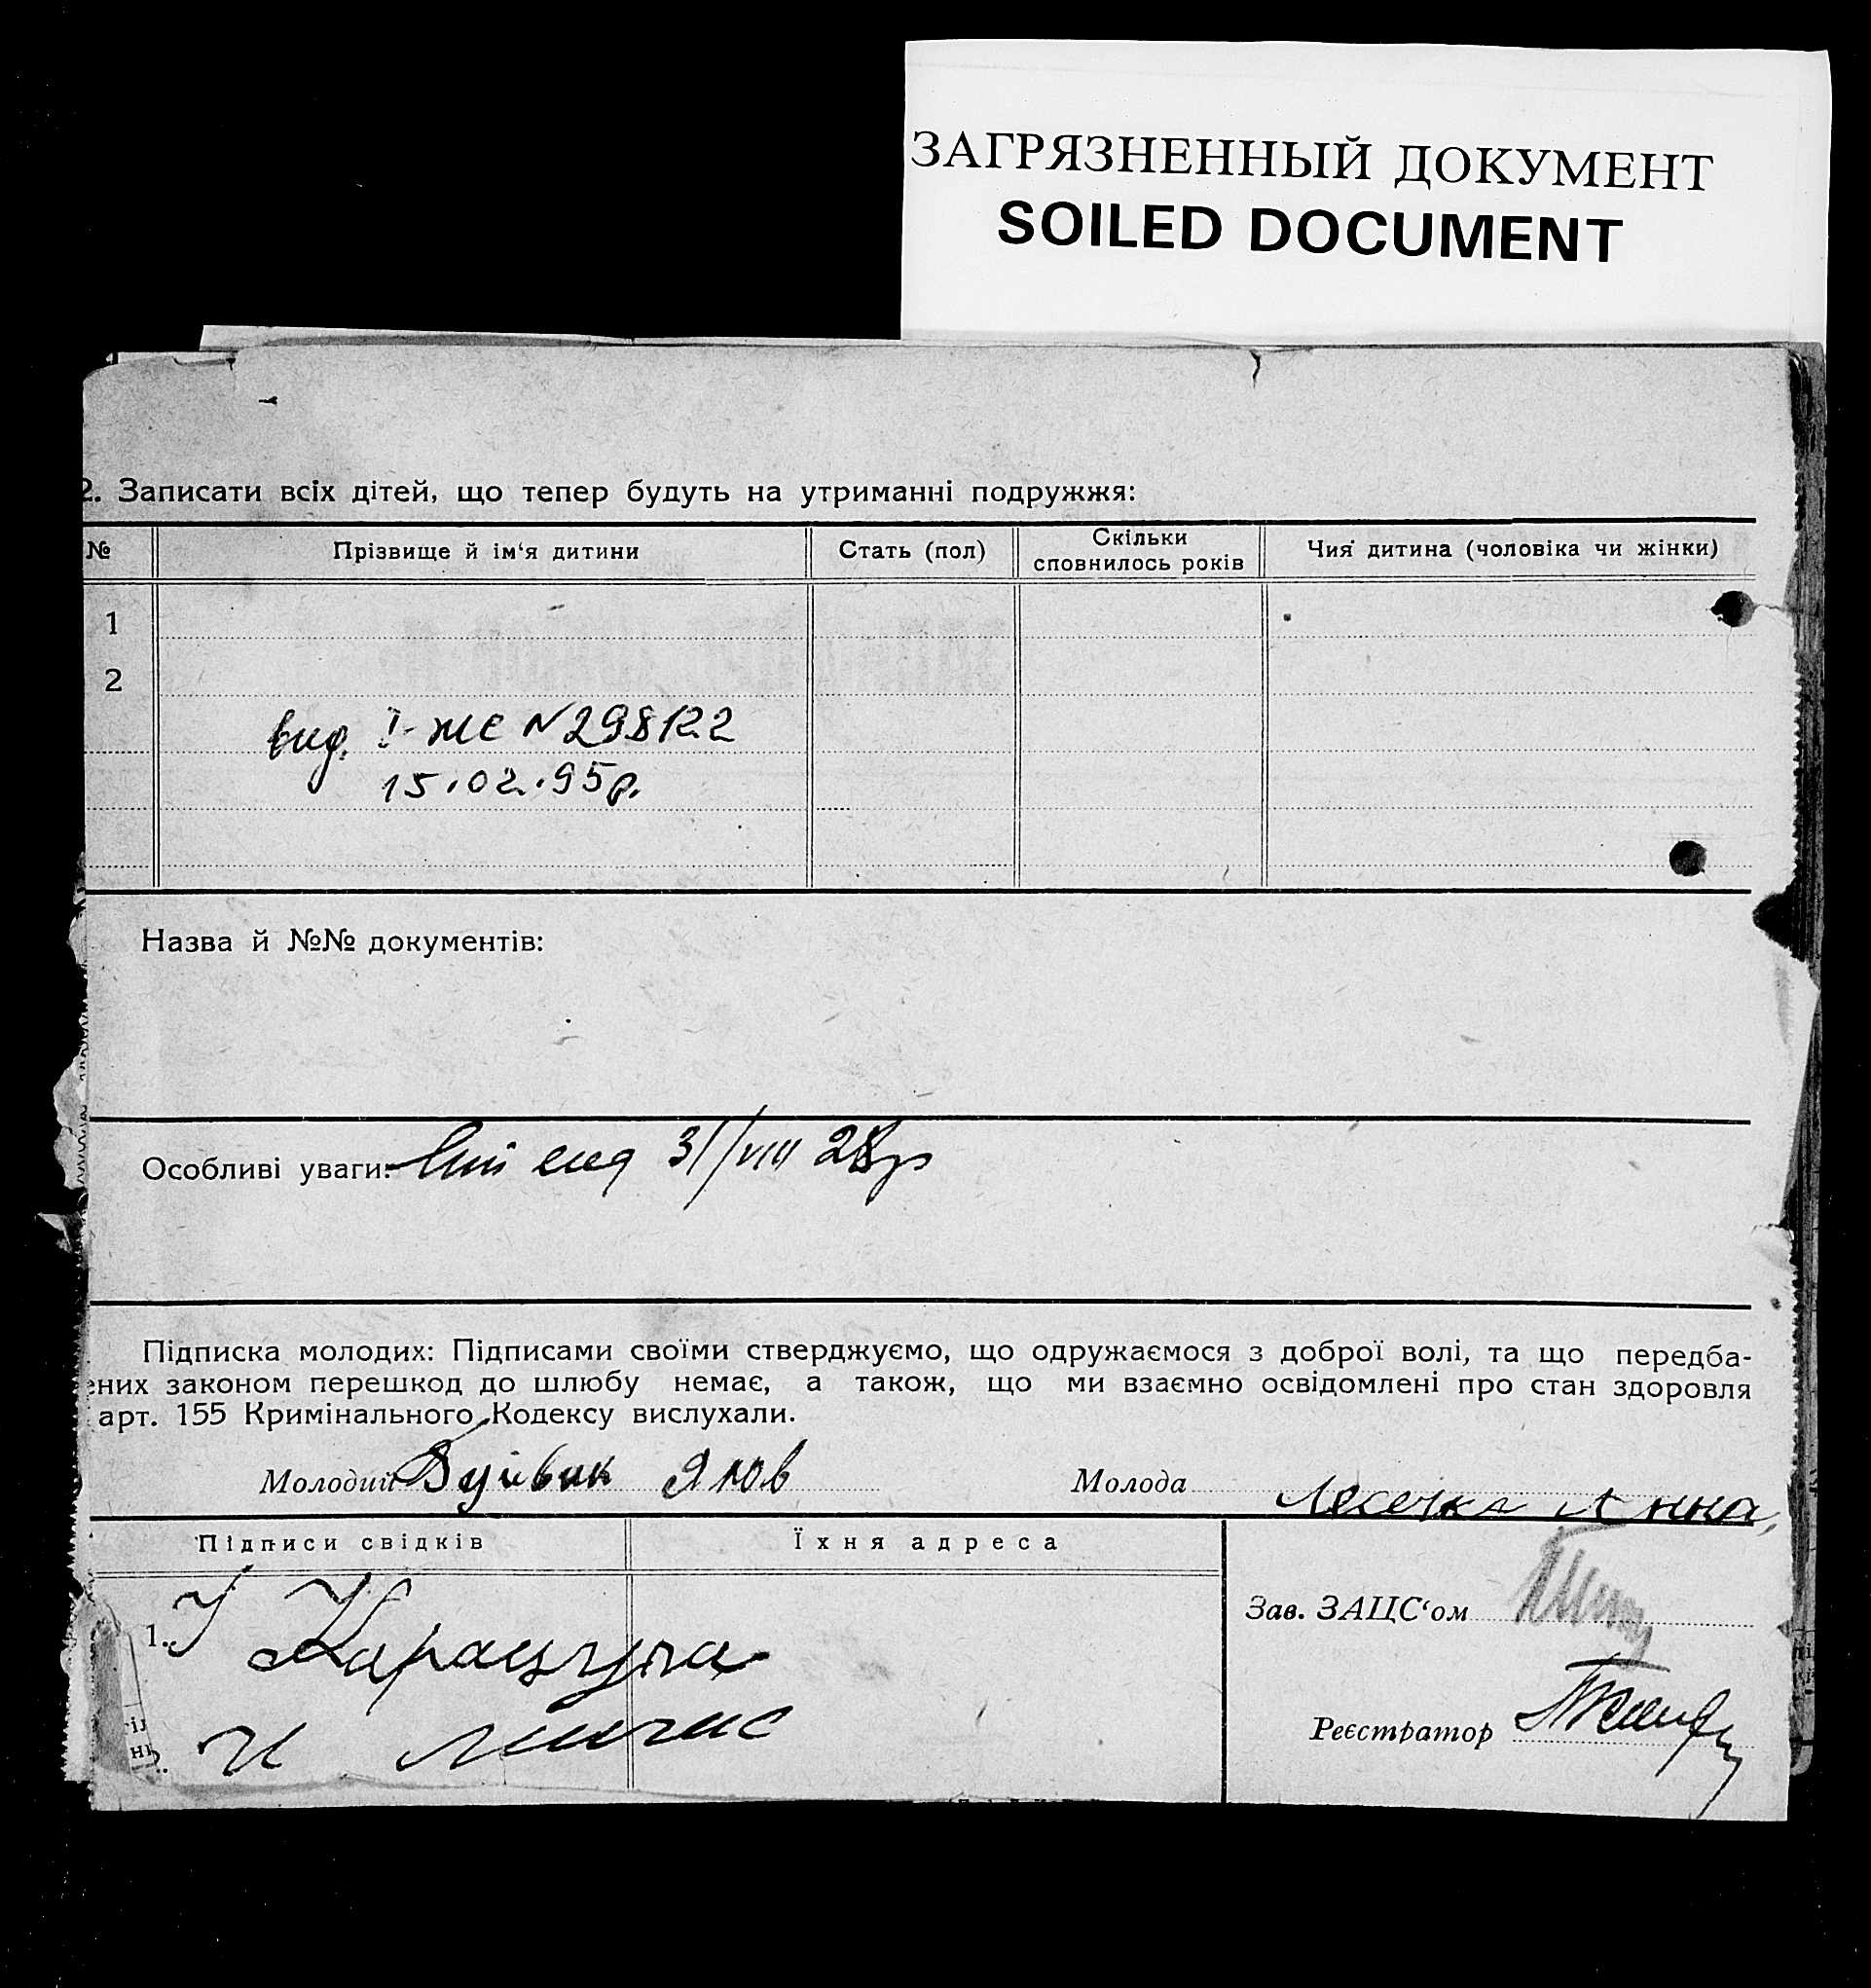 ЗАГРЯЗНЕННЫЙ ДОКУМЕНТ
SOILED DOCUMENT
2. Записати всіх дітей, що тепер будуть на утриманні подружжя:
№ Прізвище й ім'я дитини Стать (пол) Скільки сповнилось років Чия дитина (чоловіка чи жінки)
1
2
вид. І-ЖС N 298122
15.02.95р.
Назва й №№ документів:
Особливі уваги: 31/VIII 28р
Підписка молодих: Підписами своїми стверджуємо, що одружаємося з доброї волі, та що передба-
ених законом перешкод до шлюбу немає, а також, що ми взаємно освідомлені про стан здоровля
арт. 155 Кримінального Кодексу вислухали.
Молодий Буйвак Яков Молода Лесечка Анна
Підписи свідків Їхня адреса
Зав. ЗАЦС'ом
1. У Карацупа
Реєстратор
И